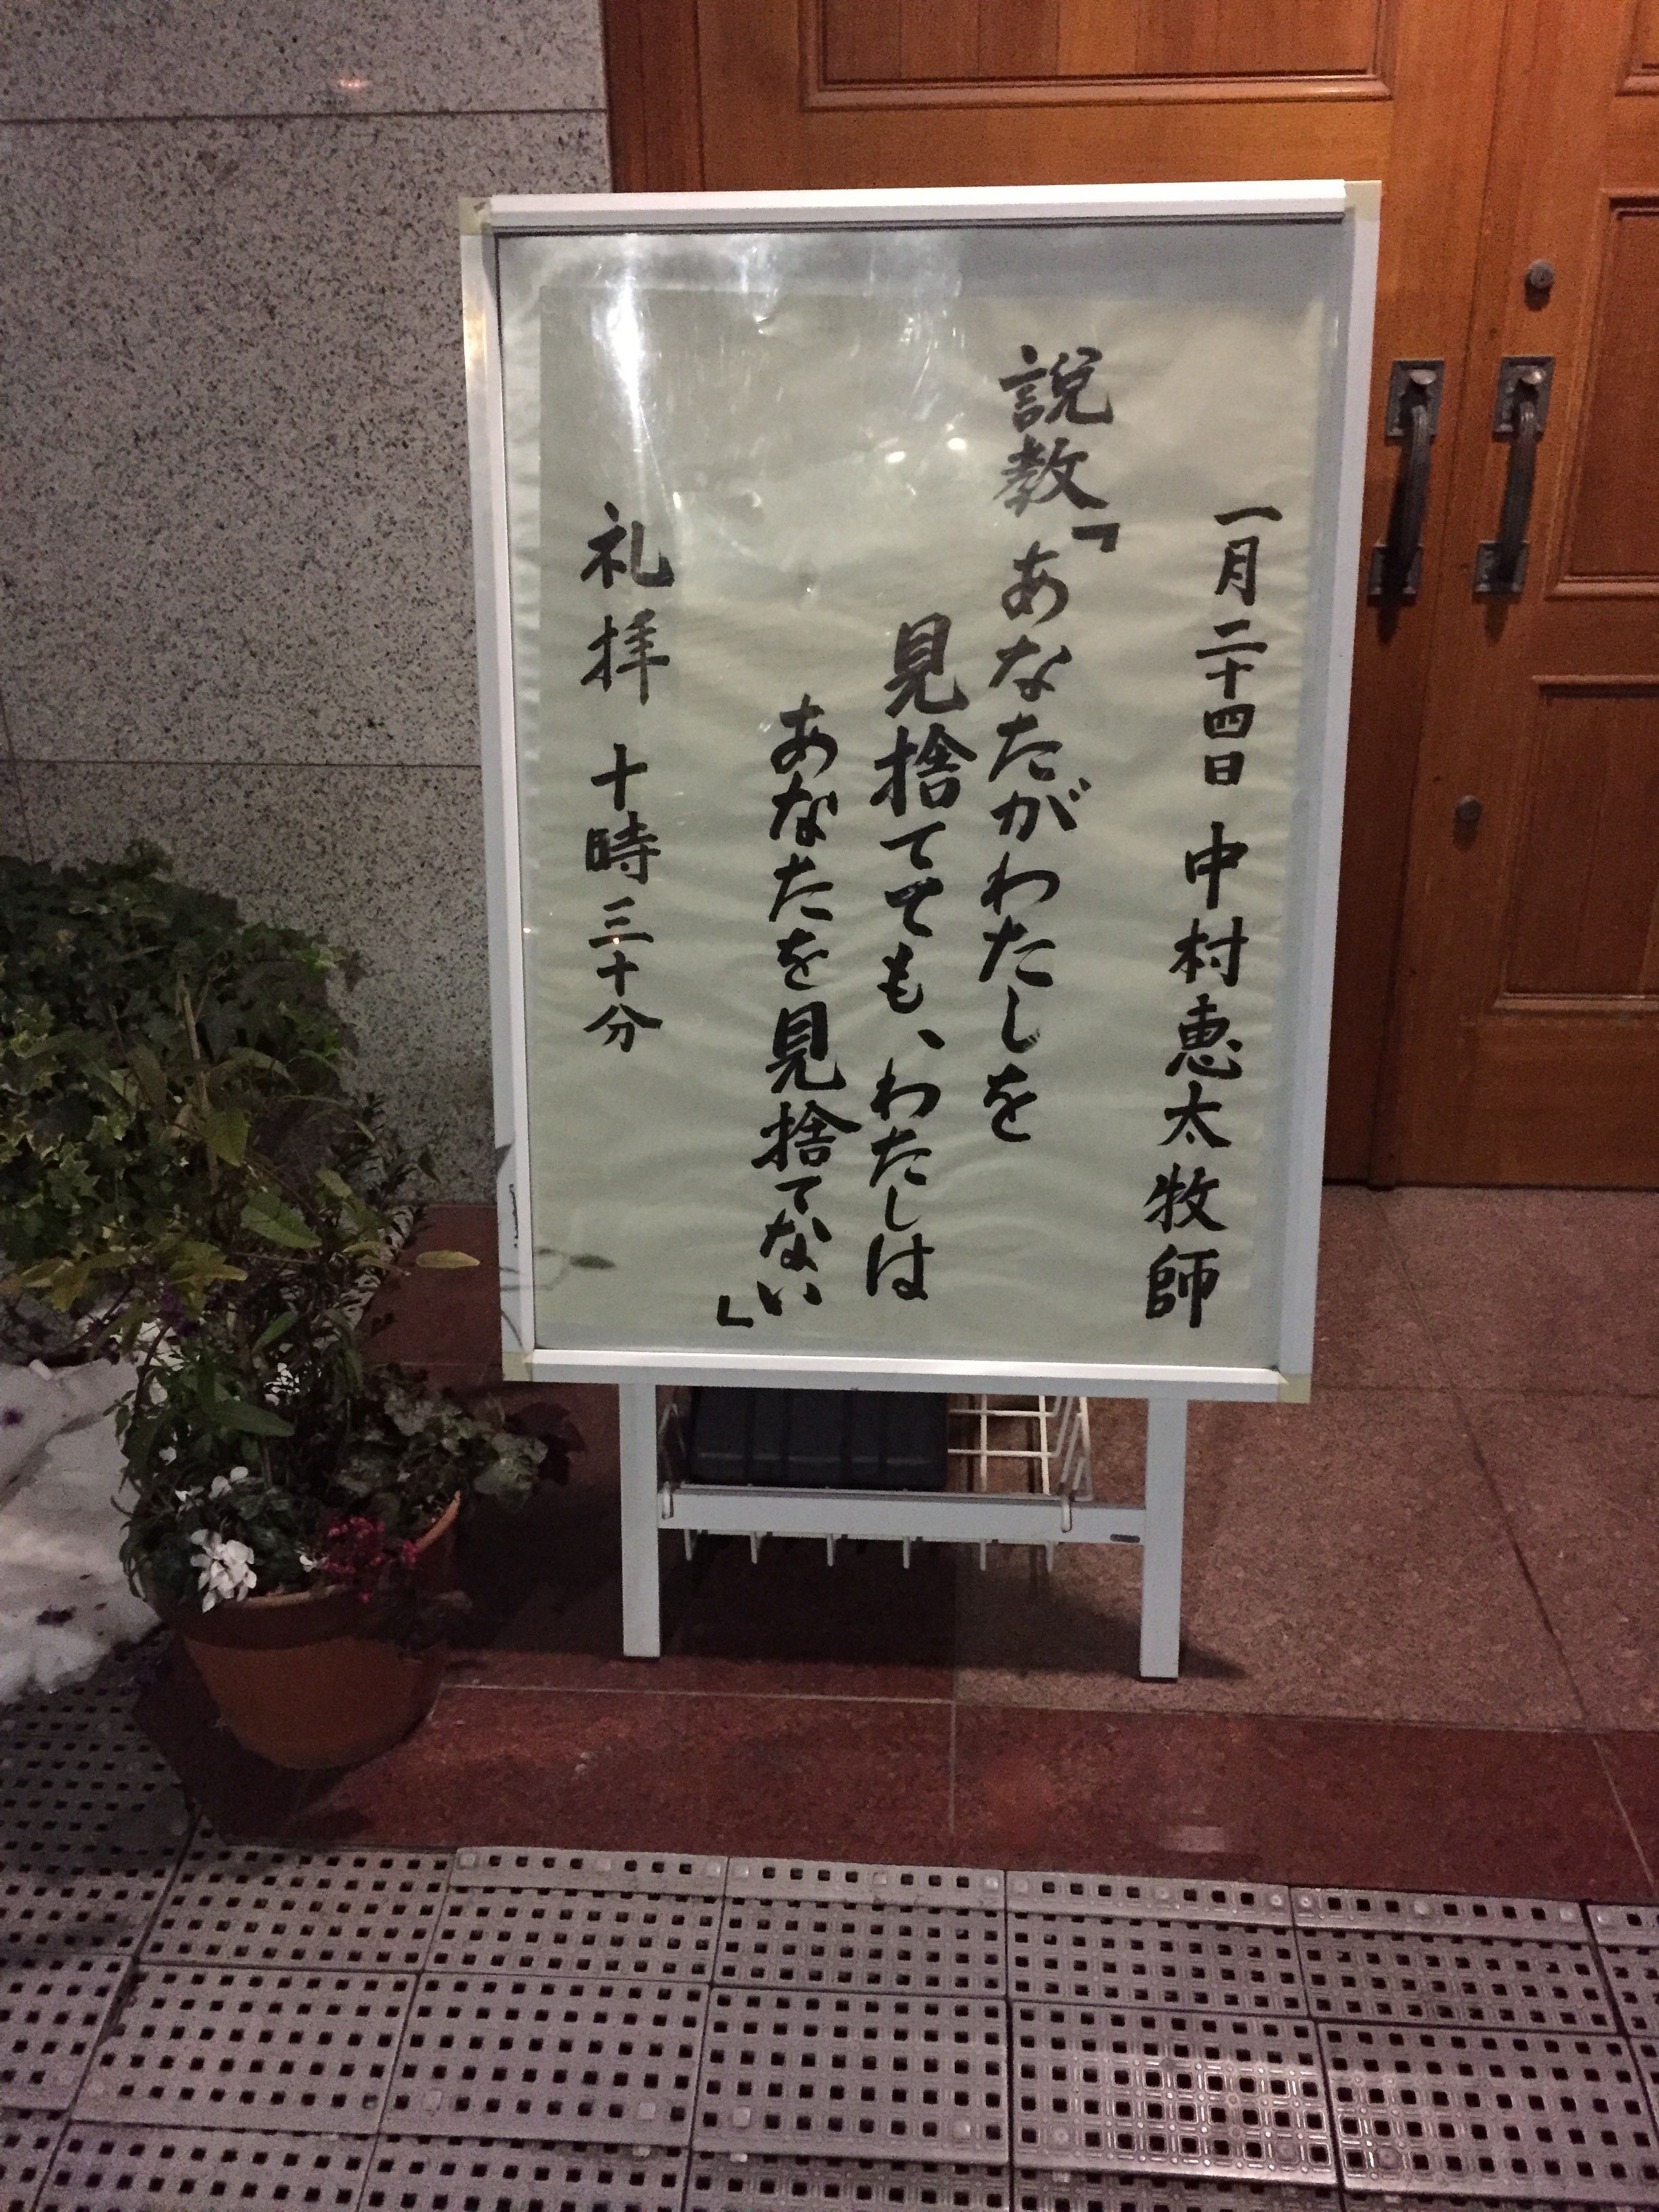 一月二十四日 中村恵太牧師
説教「あなたがわたしを
見捨てても、わたしは
あなたを見捨てない」
礼拝 十時三十分